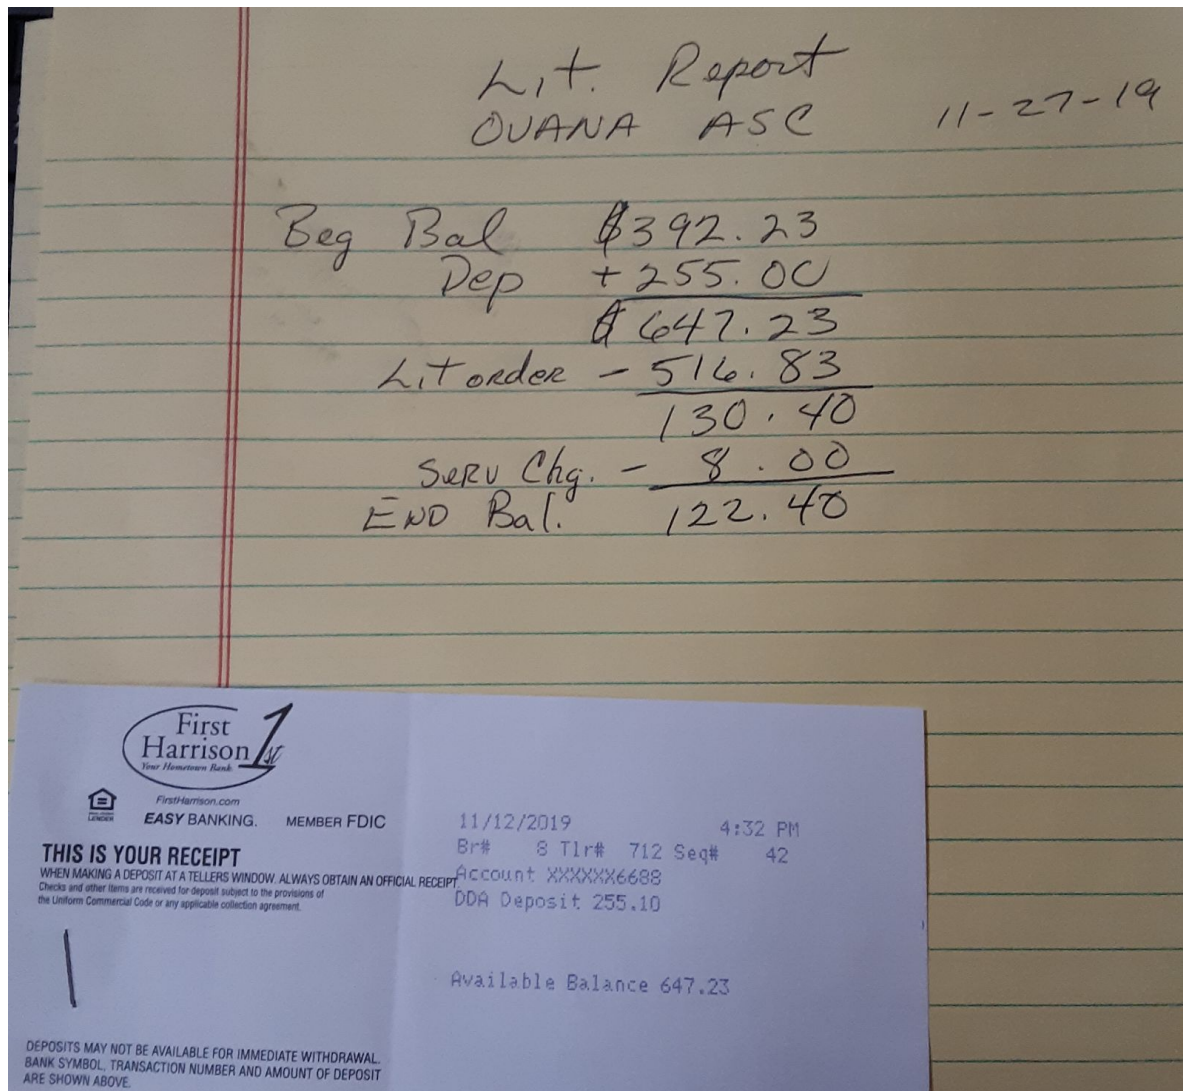 Lit. Report
OVANA ASC 11-27-19
Beg Bal $392.23
Dep +255.00
$647.23
Lit order - 516.83
130.40
Serv Chg. - 8.00
END Bal. 122.40
First
Harrison 1st
Your Hometown Bank
FirstHarrison.com
EASY BANKING. MEMBER FDIC
LENDER
THIS IS YOUR RECEIPT
WHEN MAKING A DEPOSIT AT A TELLERS WINDOW. ALWAYS OBTAIN AN OFFICIAL RECEIPT.
Checks and other items are received for deposit subject to the provisions of
the Uniform Commercial Code or any applicable collection agreement.
11/12/2019 4:32 PM
Br# 8 Tlr# 712 Seq# 42
Account XXXXXX6688
DDA Deposit 255.10
Available Balance 647.23
DEPOSITS MAY NOT BE AVAILABLE FOR IMMEDIATE WITHDRAWAL.
BANK SYMBOL, TRANSACTION NUMBER AND AMOUNT OF DEPOSIT
ARE SHOWN ABOVE.